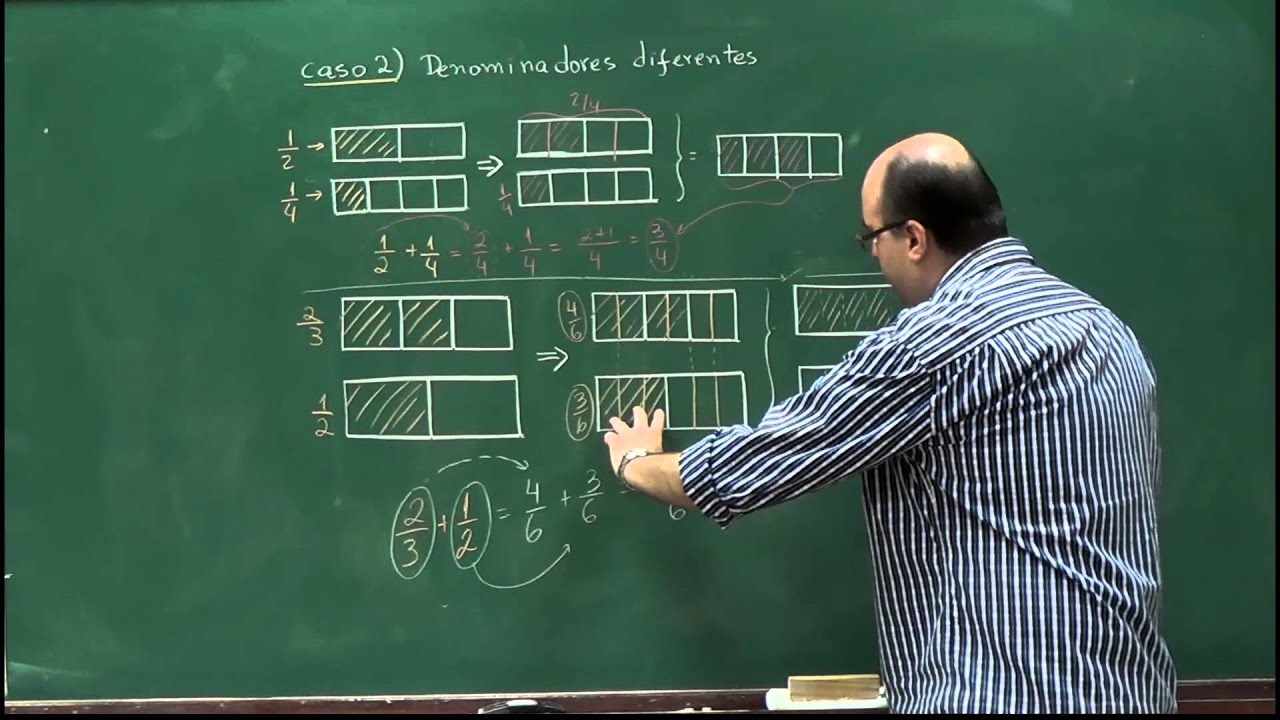 Caso 2) Denominadores diferentes
2/4
1/2 →
1/4 → ⇒ 1/4 } =
1/2 + 1/4 = 2/4 + 1/4 = 2+1/4 = 3/4
2/3 4/6
⇒
1/2 3/6
2/3 + 1/2 = 4/6 + 3/6 = /6